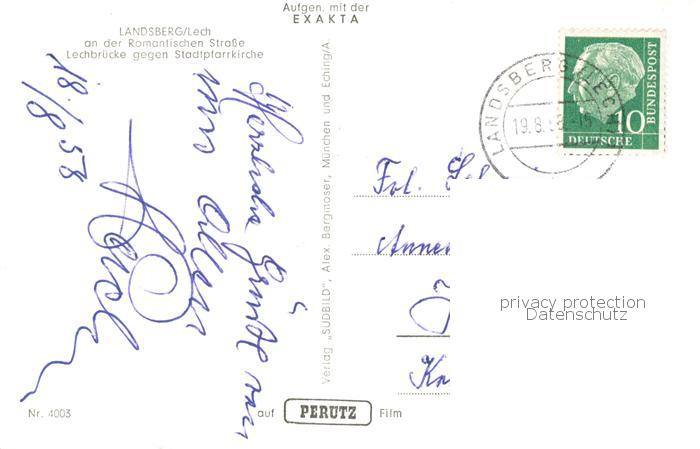 Aufgen. mit der
EXAKTA
LANDSBERG/Lech
an der Romantischen Straße
Lechbrücke gegen Stadtpfarrkirche
18./8 58
Herzliche Grüße von
uns allen
Verlag „SÜDBILD", Alex. Bergmoser, München und Eching/A.
LANDSBERG (LECH)
19.8.58-15
10
DEUTSCHE
BUNDESPOST
Frl.
privacy protection
Datenschutz
Nr. 4003
auf PERUTZ Film